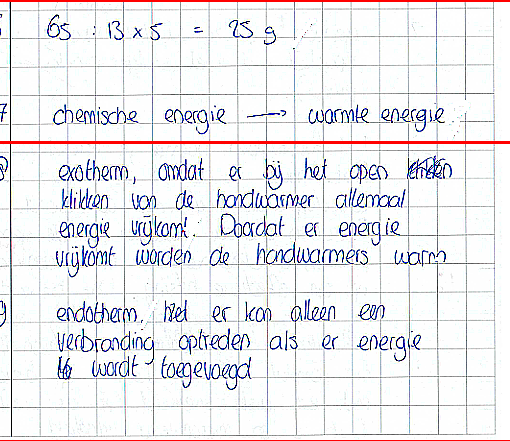 65 : 13 x 5 = 25 g
7 chemische energie → warmte energie
8 exotherm, omdat er bij het open
klikken van de handwarmer allemaal
energie vrijkomt. Doordat er energie
vrijkomt worden de handwarmers warm
9 endotherm, er kan alleen een
verbranding optreden als er energie
wordt toegevoegd